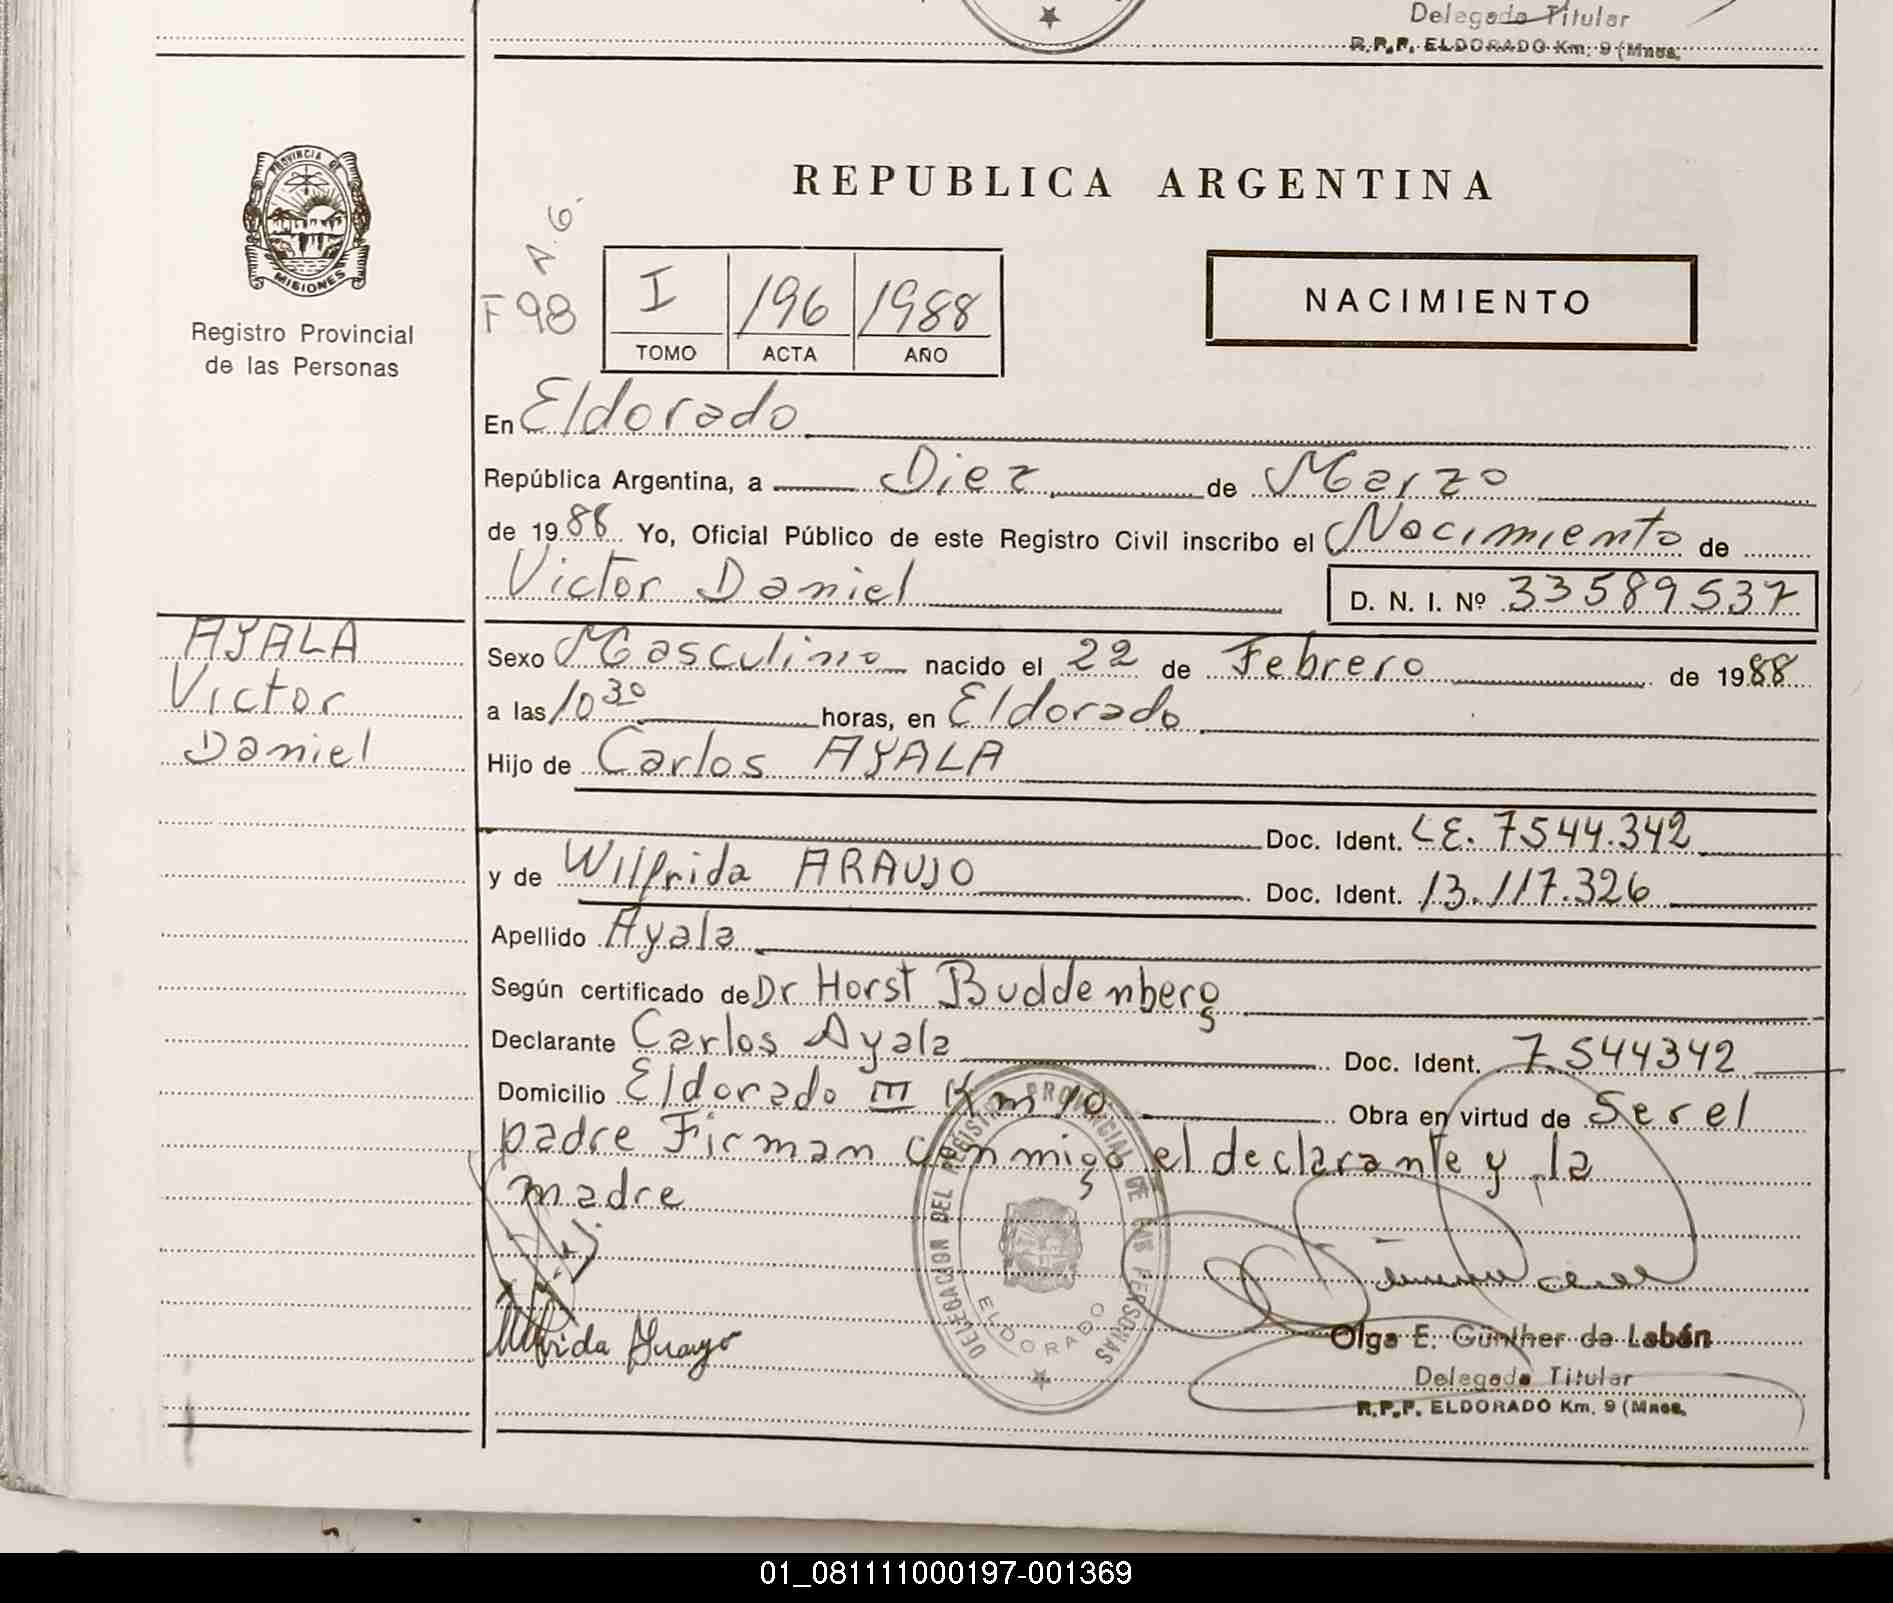 Delegada Titular
R.P.P. ELDORADO Km. 9 (Mnes.
PROVINCIA DE
MISIONES
Registro Provincial
de las Personas
REPUBLICA ARGENTINA
N.G.
F 98
I 196 1988
TOMO ACTA AÑO
NACIMIENTO
En Eldorado
República Argentina, a Diez de Marzo
de 1988 Yo, Oficial Público de este Registro Civil inscribo el Nacimiento de
Victor Daniel D. N. I. Nº 33589537
AYALA
Victor
Daniel
Sexo Masculino nacido el 22 de Febrero de 1988
a las 10 30 horas, en Eldorado
Hijo de Carlos AYALA
Doc. Ident. LE. 7544.342
y de Wilfrida ARAUJO Doc. Ident. 13.117.326
Apellido Ayala
Según certificado de Dr Horst Buddenberg
Declarante Carlos Ayala Doc. Ident. 7.544342
Domicilio Eldorado III Km 10 Obra en virtud de Ser el
padre Firman conmigo el declarante y la
madre
DELEGACION DEL REGISTRO PROVINCIAL DE LAS PERSONAS
ELDORADO
Olga E. Günther de Labán
Delegada Titular
R.P.P. ELDORADO Km. 9 (Mnes.
01_081111000197-001369